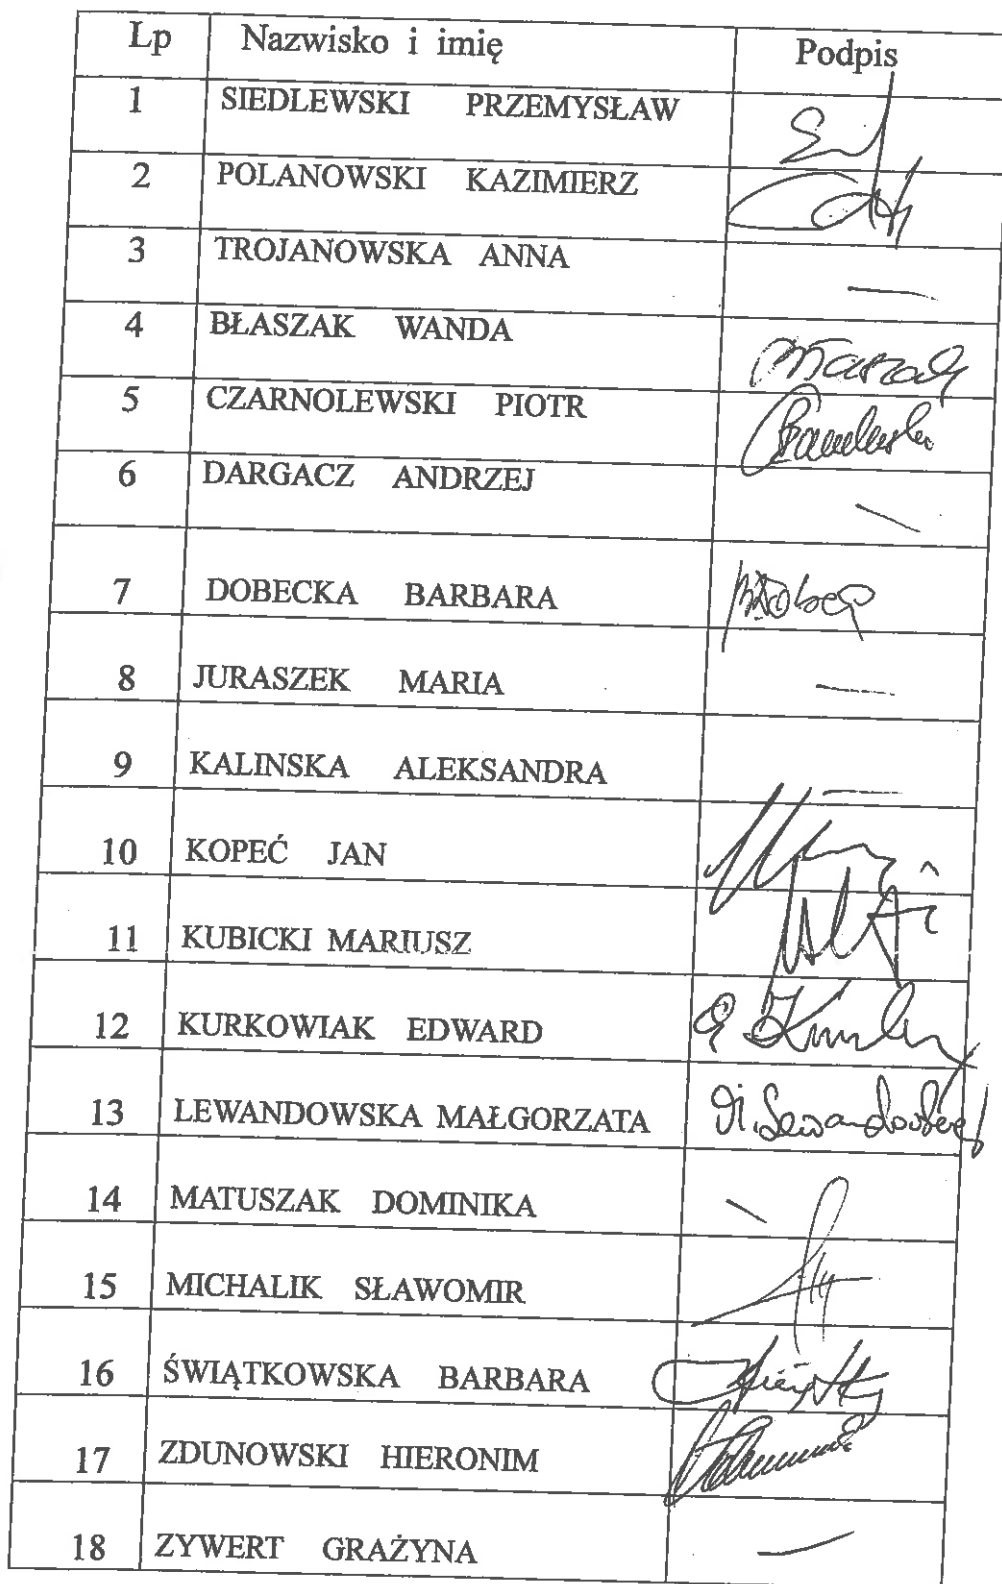 Lp Nazwisko i imię Podpis
1 SIEDLEWSKI PRZEMYSŁAW
2 POLANOWSKI KAZIMIERZ
3 TROJANOWSKA ANNA —
4 BŁASZAK WANDA
5 CZARNOLEWSKI PIOTR
6 DARGACZ ANDRZEJ —
7 DOBECKA BARBARA
8 JURASZEK MARIA —
9 KALINSKA ALEKSANDRA —
10 KOPEĆ JAN
11 KUBICKI MARIUSZ
12 KURKOWIAK EDWARD
13 LEWANDOWSKA MAŁGORZATA
14 MATUSZAK DOMINIKA —
15 MICHALIK SŁAWOMIR
16 ŚWIĄTKOWSKA BARBARA
17 ZDUNOWSKI HIERONIM
18 ZYWERT GRAŻYNA —